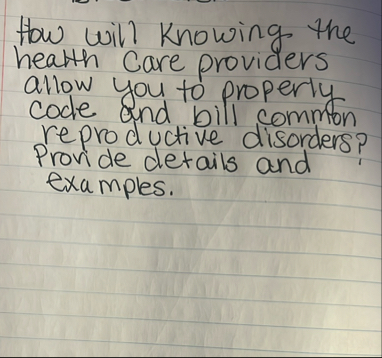 How will Knowing the
health Care providers
allow you to properly
code and bill common
reproductive disorders?
Provide details and
examples.